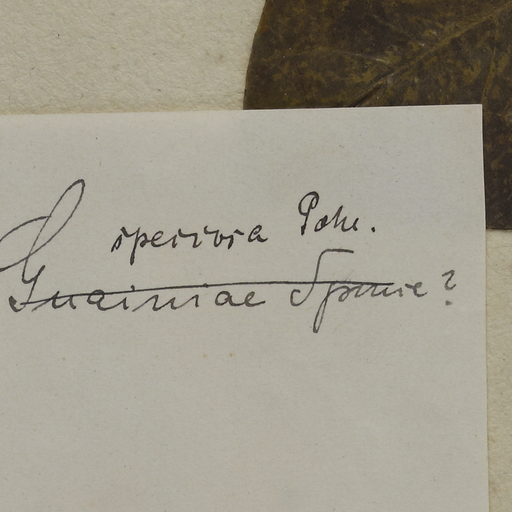 speciosa Pohl.
Guainiae Spruce?